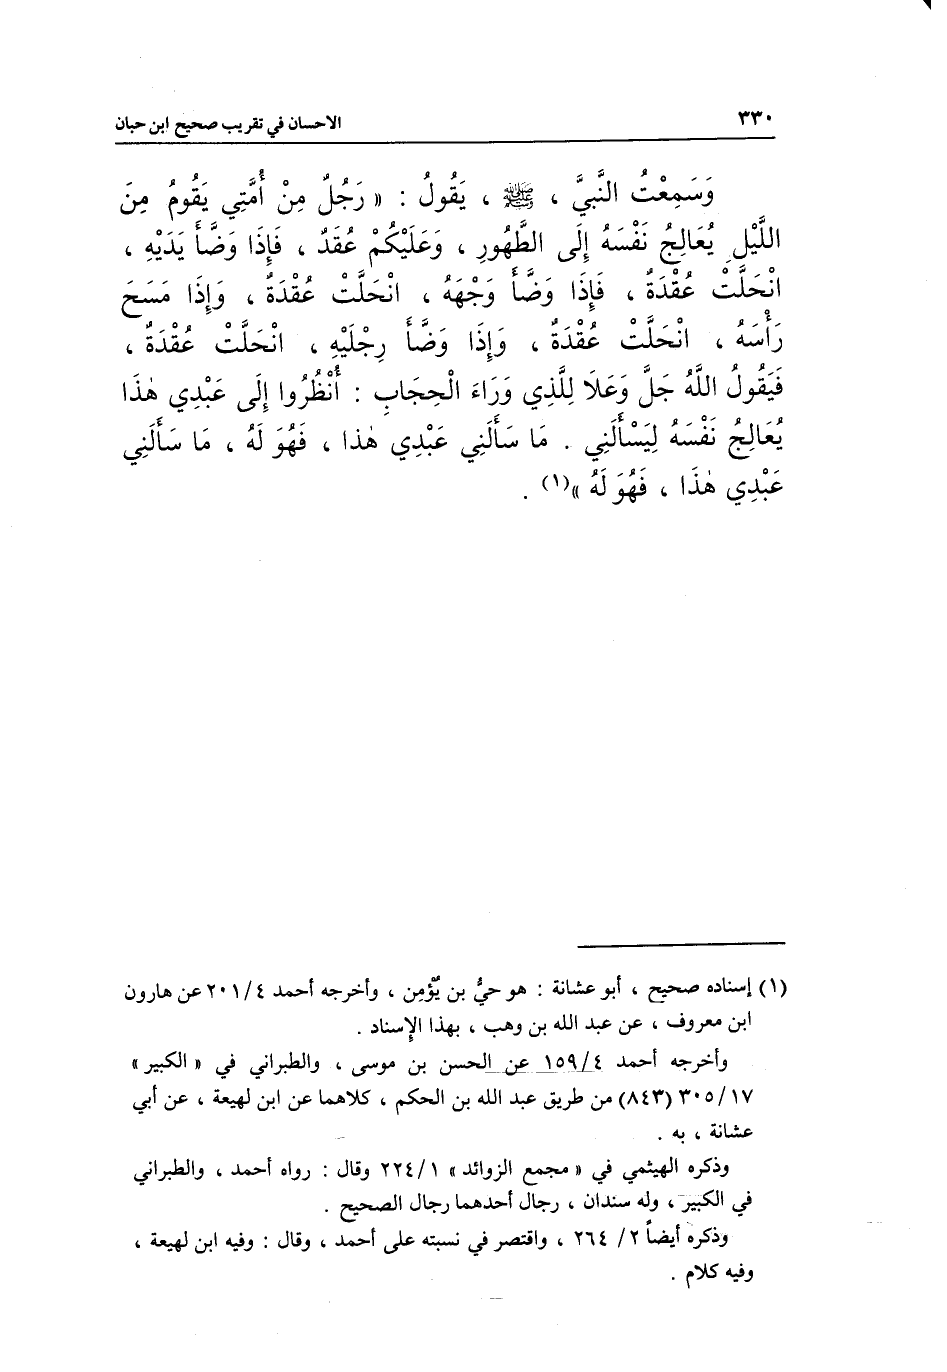 ٣٣٠ الاحسان في تقريب صحيح ابن حبان
وَسَمِعْتُ النَّبِيَّ ، ﷺ ، يَقُولُ : « رَجُلٌ مِنْ أُمَّتِي يَقُومُ مِنَ
اللَّيْلِ يُعَالِجُ نَفْسَهُ إِلَى الطَّهُورِ ، وَعَلَيْكُمْ عُقَدٌ ، فَإِذَا وَضَّأَ يَدَيْهِ ،
انْحَلَّتْ عُقْدَةٌ ، فَإِذَا وَضَّأَ وَجْهَهُ ، انْحَلَّتْ عُقْدَةٌ ، وَإِذَا مَسَحَ
رَأْسَهُ ، انْحَلَّتْ عُقْدَةٌ ، وَإِذَا وَضَّأَ رِجْلَيْهِ ، انْحَلَّتْ عُقْدَةٌ ،
فَيَقُولُ اللَّهُ جَلَّ وَعَلَا لِلَّذِي وَرَاءَ الْحِجَابِ : أُنْظُرُوا إِلَى عَبْدِي هٰذَا
يُعَالِجُ نَفْسَهُ لِيَسْأَلَنِي . مَا سَأَلَنِي عَبْدِي هٰذا ، فَهُوَ لَهُ ، مَا سَأَلَنِي
عَبْدِي هٰذَا ، فَهُوَ لَهُ »(١) .
(١) إسناده صحيح ، أبو عشانة : هو حيُّ بن يُؤمِن ، وأخرجه أحمد ٢٠١/٤ عن هارون
ابن معروف ، عن عبد الله بن وهب ، بهذا الإسناد .
وأخرجه أحمد ١٥٩/٤ عن الحسن بن موسى ، والطبراني في « الكبير »
٣٠٥/١٧ (٨٤٣) من طريق عبد الله بن الحكم ، كلاهما عن ابن لهيعة ، عن أبي
عشانة ، به .
وذكره الهيثمي في « مجمع الزوائد » ٢٢٤/١ وقال : رواه أحمد ، والطبراني
في الكبير ، وله سندان ، رجال أحدهما رجال الصحيح .
وذكره أيضاً ٢/ ٢٦٤ ، واقتصر في نسبته على أحمد ، وقال : وفيه ابن لهيعة ،
وفيه كلام .